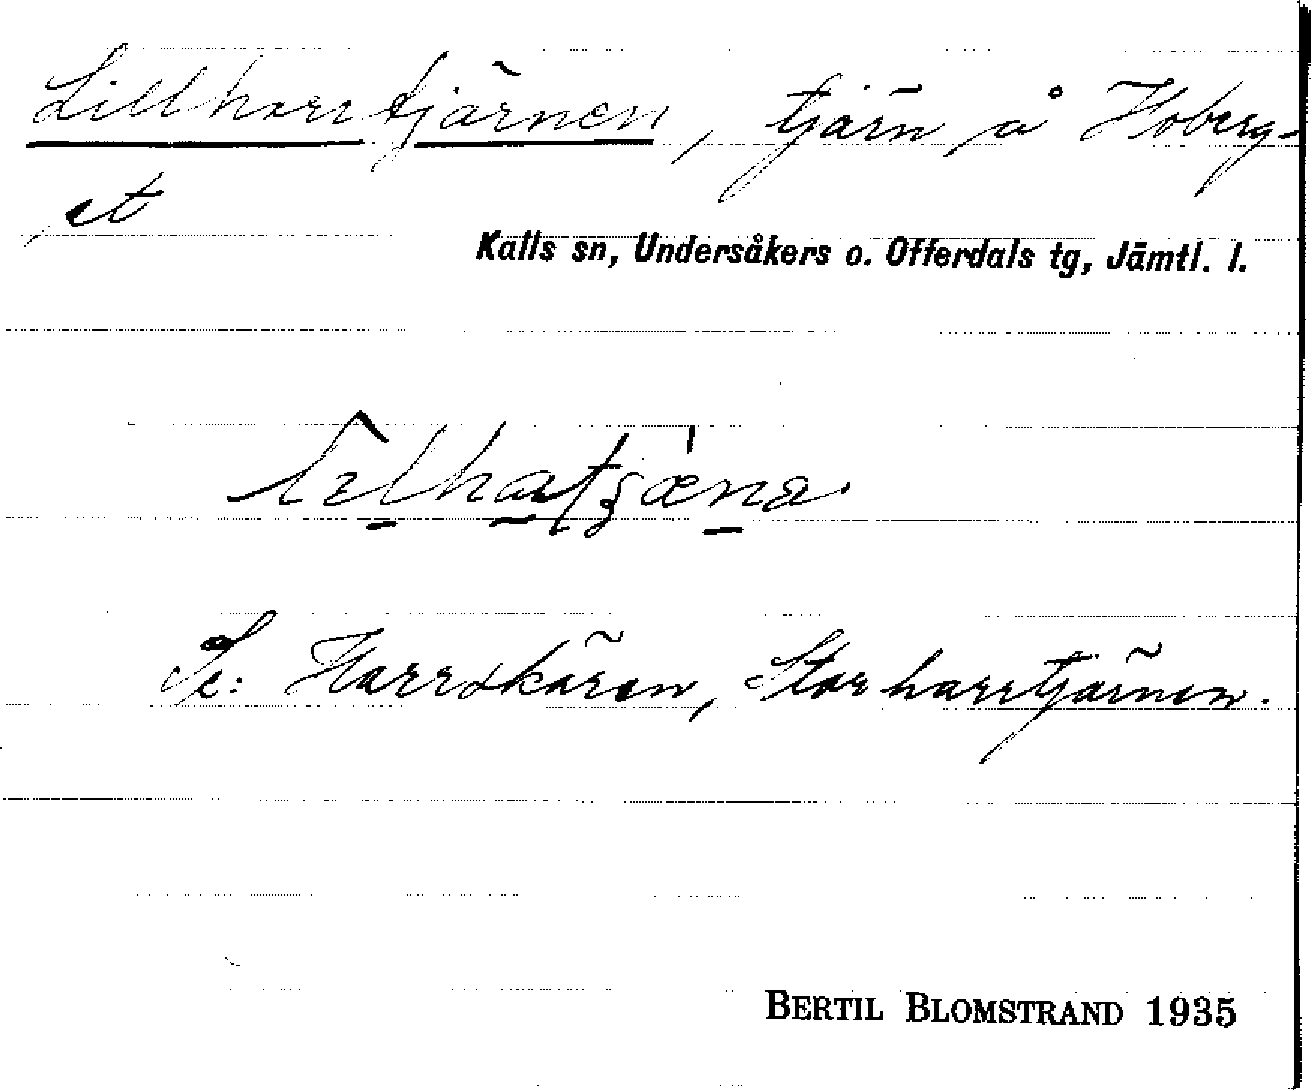 Lillharrtjärnen, tjärn å Hoberg-
et
Kalls sn, Undersåkers o. Offerdals tg, Jämtl. l.
Se: Harrskären, Storharrtjärnen.
BERTIL BLOMSTRAND 1935